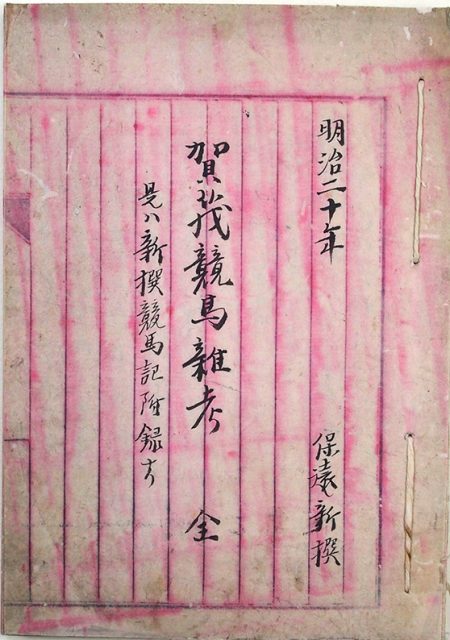 明治二十年
保遠新撰
賀茂競馬雜考　全
是ハ新撰競馬記附録ナリ